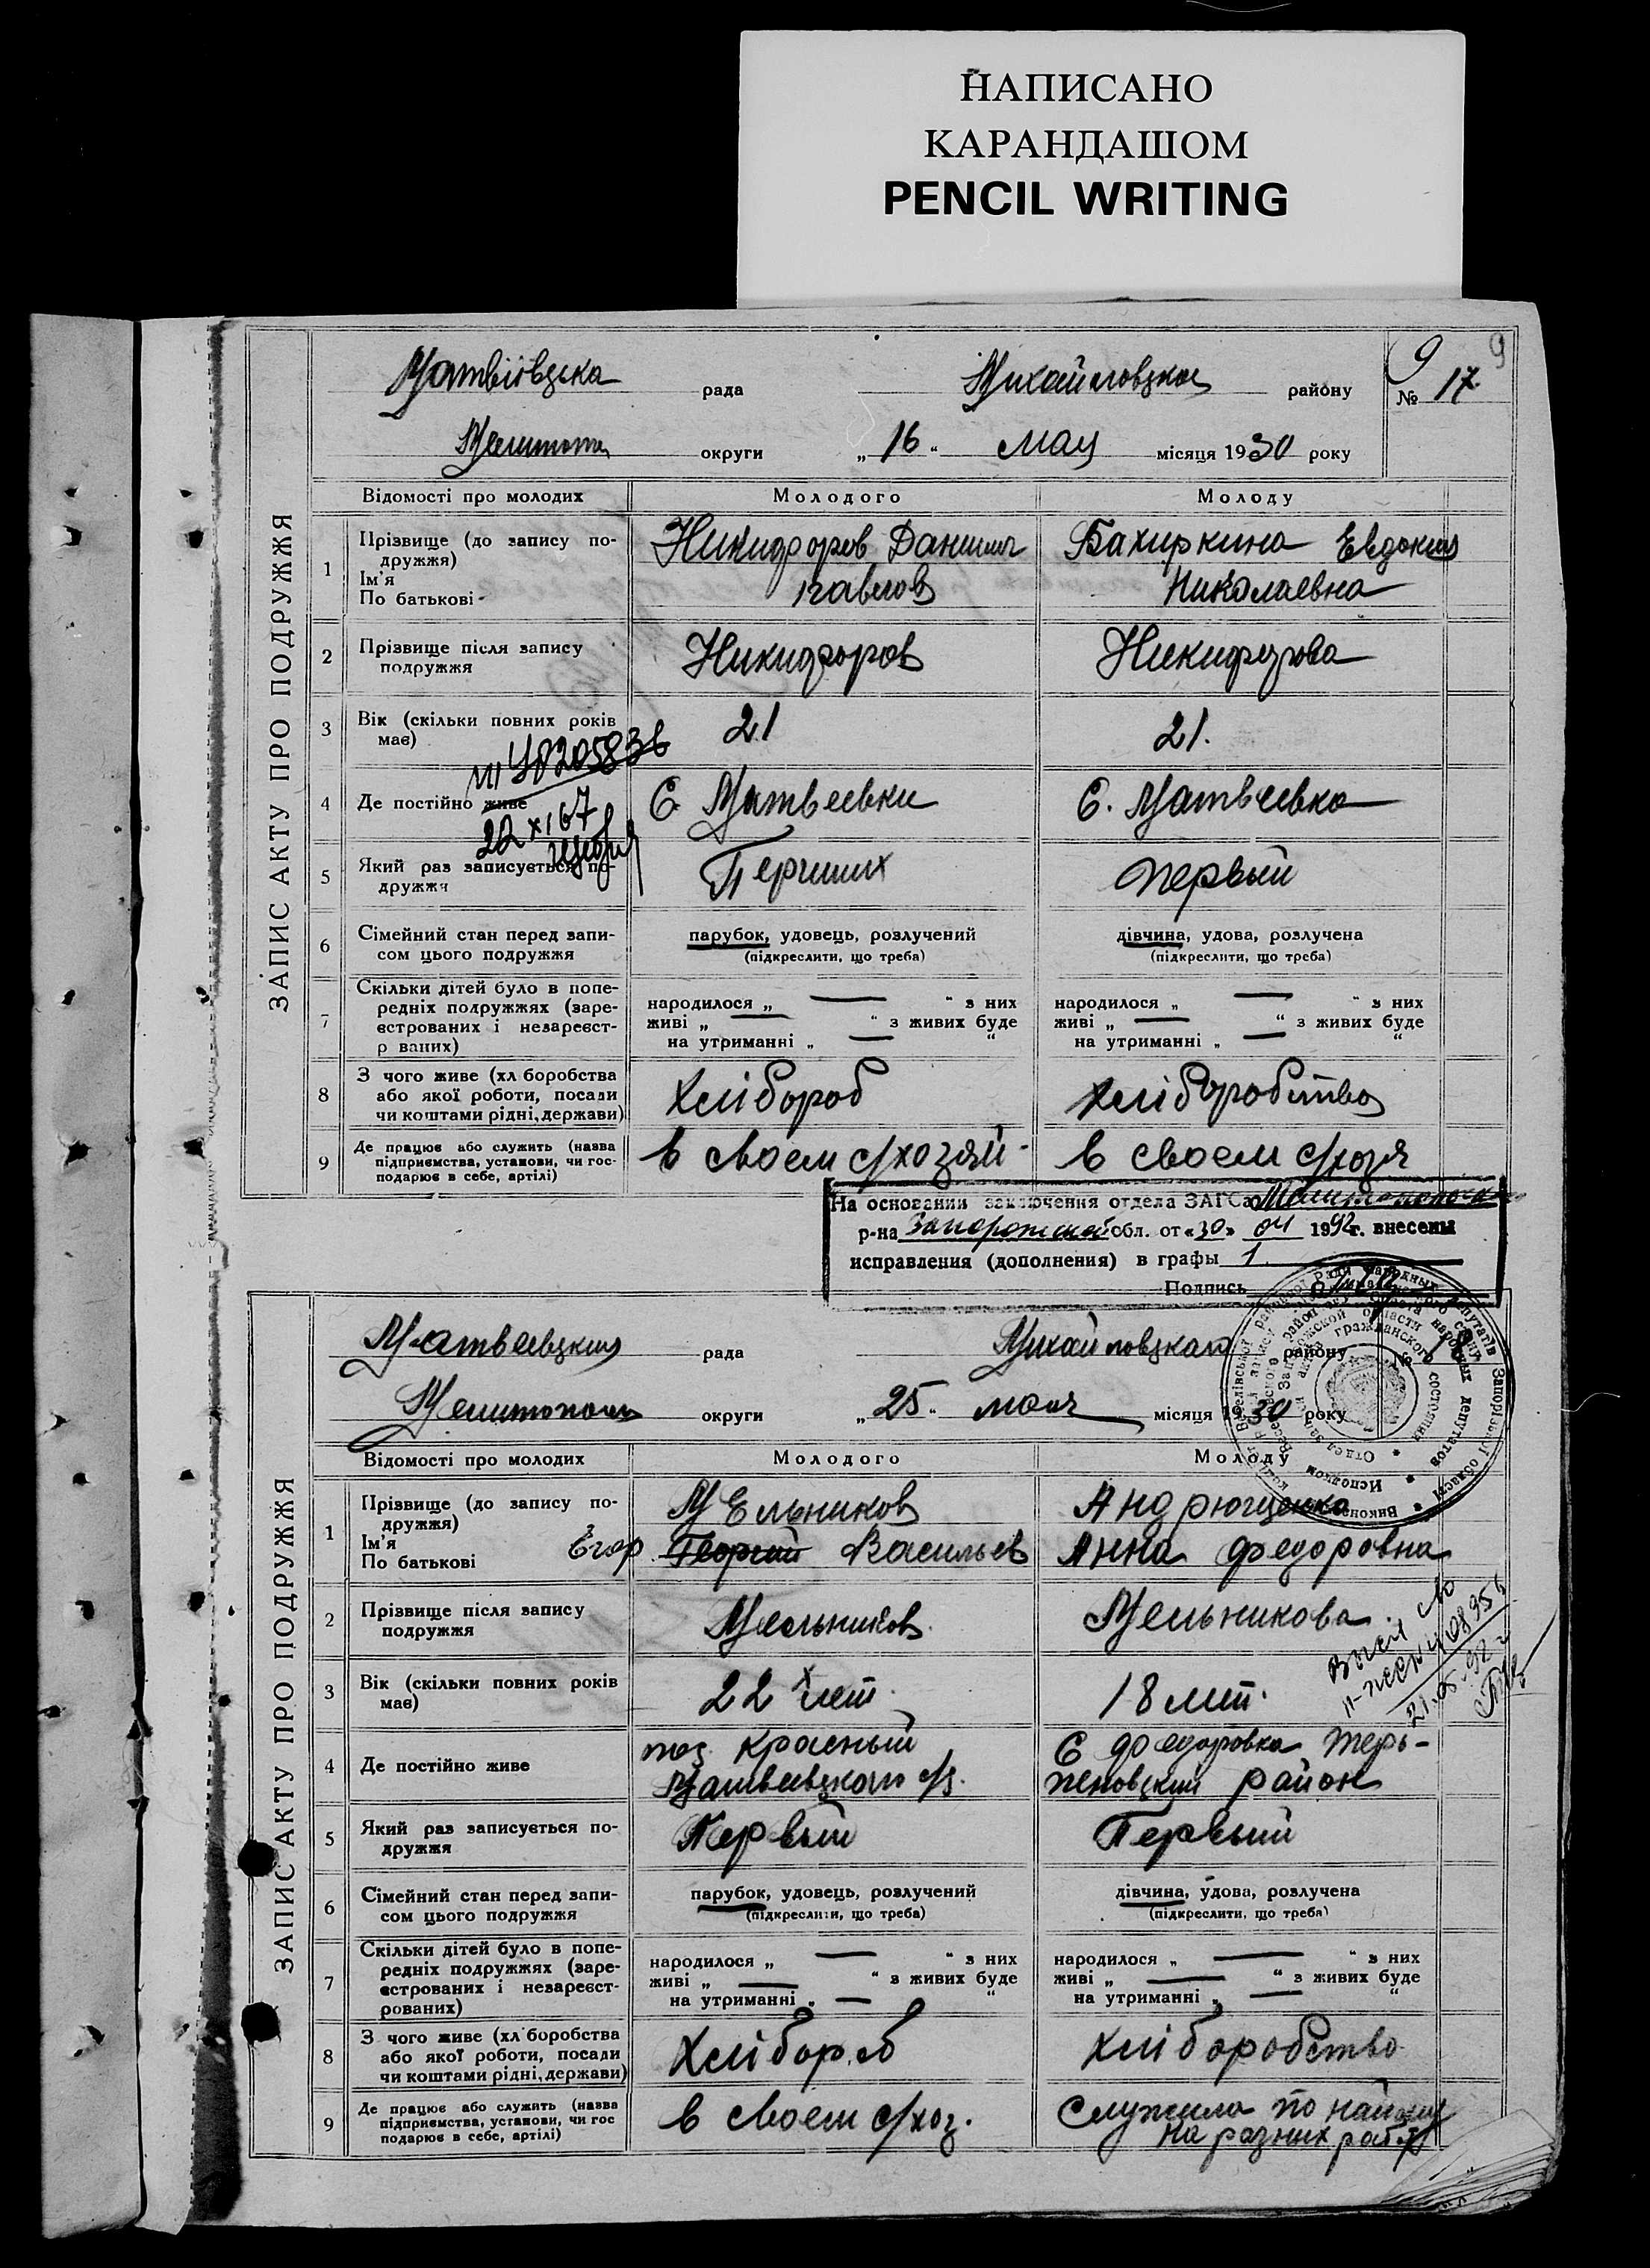 НАПИСАНО
КАРАНДАШОМ
PENCIL WRITING
9
9
ЗАПИС АКТУ ПРО ПОДРУЖЖЯ
Матвіївська рада Михайловского району № 17.
Мелитоп округи „16“ мая місяця 1930 року
Відомості про молодих Молодого Молоду
1 Прізвище (до запису по-
дружжя)
Ім'я
По батькові
Никифоров Даниил
Павлов
Бахиркина Евдокия
Николаевна
2 Прізвище після запису
подружжя
Никифоров Никифорова
3 Вік (скільки повних років
має)
21 21.
4 Де постійно живе С. Матвеевки С. Матвеевка
22 XI 67
5 Який раз записується по-
дружжя
Перших первый
6 Сімейний стан перед запи-
сом цього подружжя
парубок, удовець, розлучений
(підкреслити, що треба)
дівчина, удова, розлучена
(підкреслити, що треба)
7 Скільки дітей було в попе-
редніх подружжях (заре-
єстрованих і незареєст-
р ваних)
народилося „ — “ з них
живі „ — “ з живих буде
на утриманні „ — “
народилося „ — “ з них
живі „ — “ з живих буде
на утриманні „ — “
8 З чого живе (хл боробства
або якої роботи, посади
чи коштами рідні, держави)
Хлібороб хліборобство
9 Де працює або служить (назва
підприємства, установи, чи гос-
подарює в себе, артілі)
в своем с/хозяй- в своем с/хозя
На основании заключения отдела ЗАГСа
р-на Запорожской обл. от «30» 04 1992г. внесены
исправления (дополнения) в графы 1.
Подпись
ЗАПИС АКТУ ПРО ПОДРУЖЖЯ
Матвеевский рада Михайловского району №
Мелитополь округи „25“ мая місяця 1930 року
Відомості про молодих Молодого Молоду
1 Прізвище (до запису по-
дружжя)
Ім'я
По батькові
Мельников
Егор Георгий Васильев
Андрющенко
Анна Федоровна
2 Прізвище після запису
подружжя
Мельников. Мельникова.
3 Вік (скільки повних років
має)
22 лет. 18 лет.
21.05.92 г
4 Де постійно живе
пос. Красный
Матвеевского с/с.
С Федоровка Терь-
пеновский район
5 Який раз записується по-
дружжя
Первый Первый
6 Сімейний стан перед запи-
сом цього подружжя
парубок, удовець, розлучений
(підкреслити, що треба)
дівчина, удова, розлучена
(підкреслити, що треба)
7 Скільки дітей було в попе-
редніх подружжях (заре-
єстрованих і незареєст-
рованих)
народилося „ — “ з них
живі „ — “ з живих буде
на утриманні „ — “
народилося „ — “ з них
живі „ — “ з живих буде
на утриманні „ — “
8 З чого живе (хл боробства
або якої роботи, посади
чи коштами рідні, держави)
Хлібороб хліборобство
9 Де працює або служить (назва
підприємства, установи, чи гос
подарює в себе, артілі)
в своем с/хоз.
Служила по найму
на разних работ